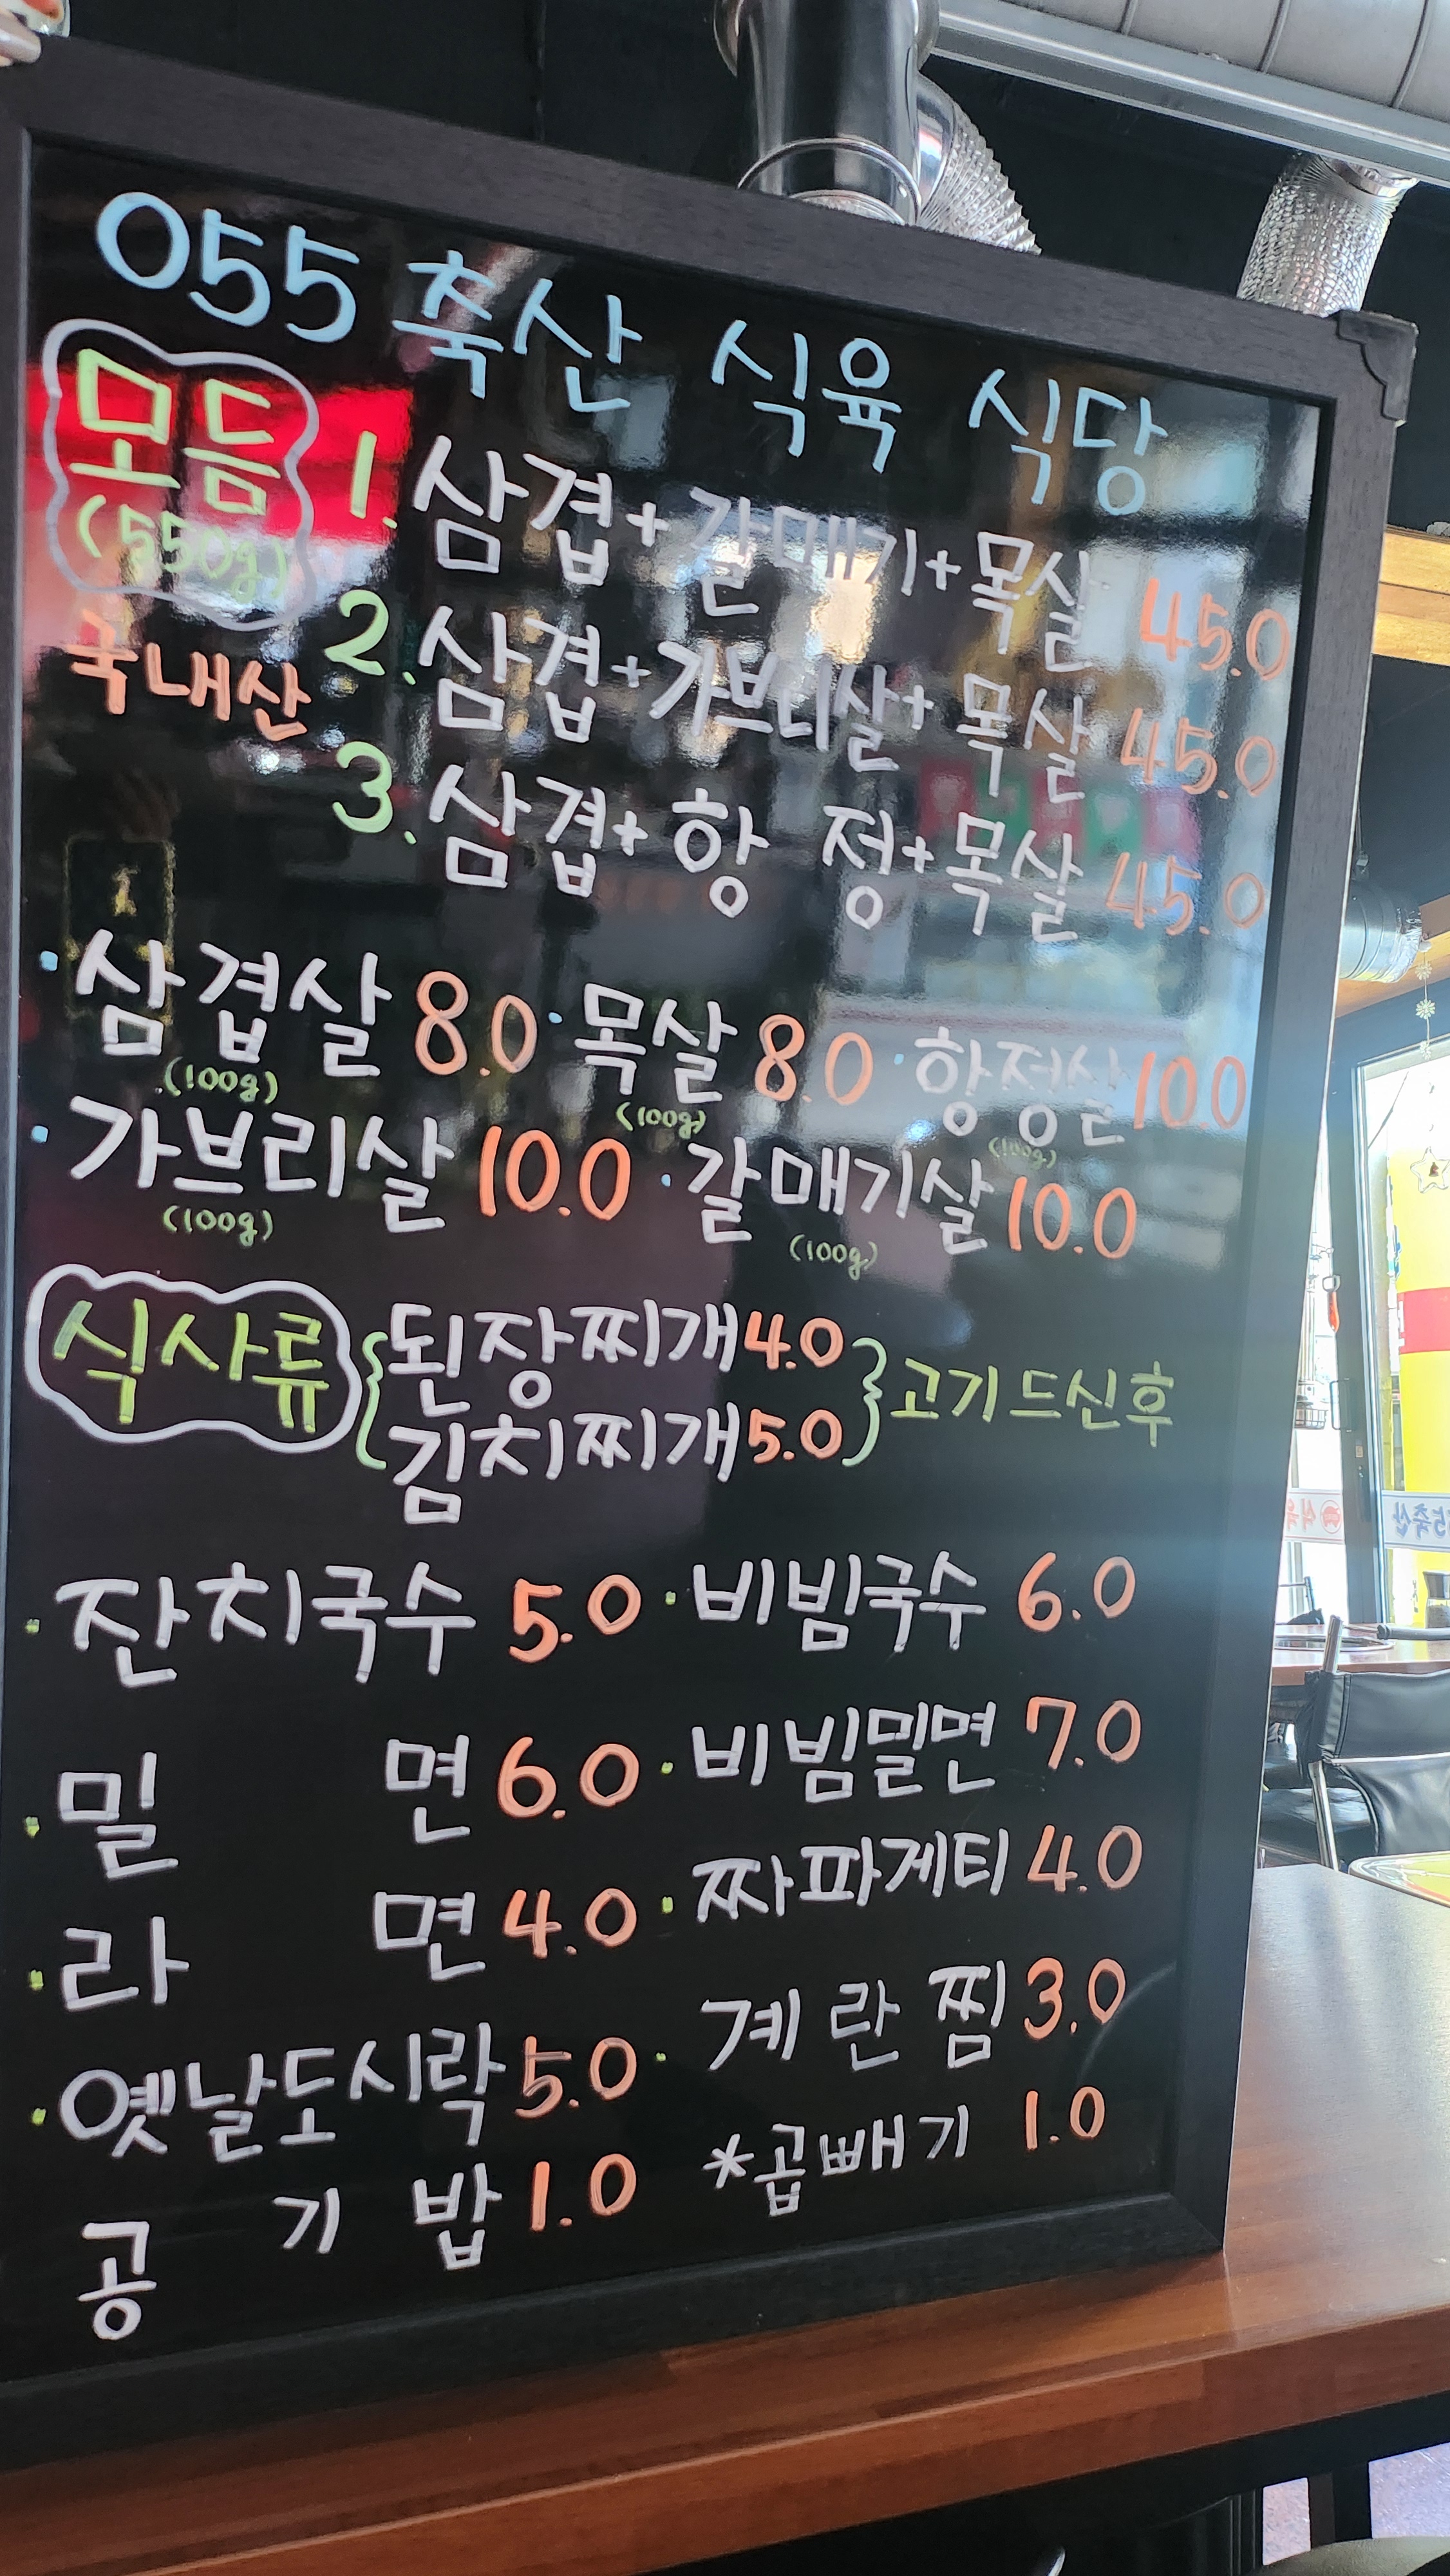 055 축산 식육 식당
모듬 (550g)
국내산
1. 삼겹+갈매기+목살 45.0
2. 삼겹+가브리살+목살 45.0
3. 삼겹+항 정+목살 45.0
· 삼겹살 8.0 · 목살 8.0 · 항정살 10.0
(100g) (100g) (100g)
· 가브리살 10.0 · 갈매기살 10.0
(100g) (100g)
식사류 { 된장찌개 4.0
김치찌개 5.0 } 고기드신후
· 잔치국수 5.0 · 비빔국수 6.0
· 밀 면 6.0 · 비빔밀면 7.0
· 라 면 4.0 · 짜파게티 4.0
· 옛날도시락 5.0 · 계란찜 3.0
공 기 밥 1.0 *곱빼기 1.0